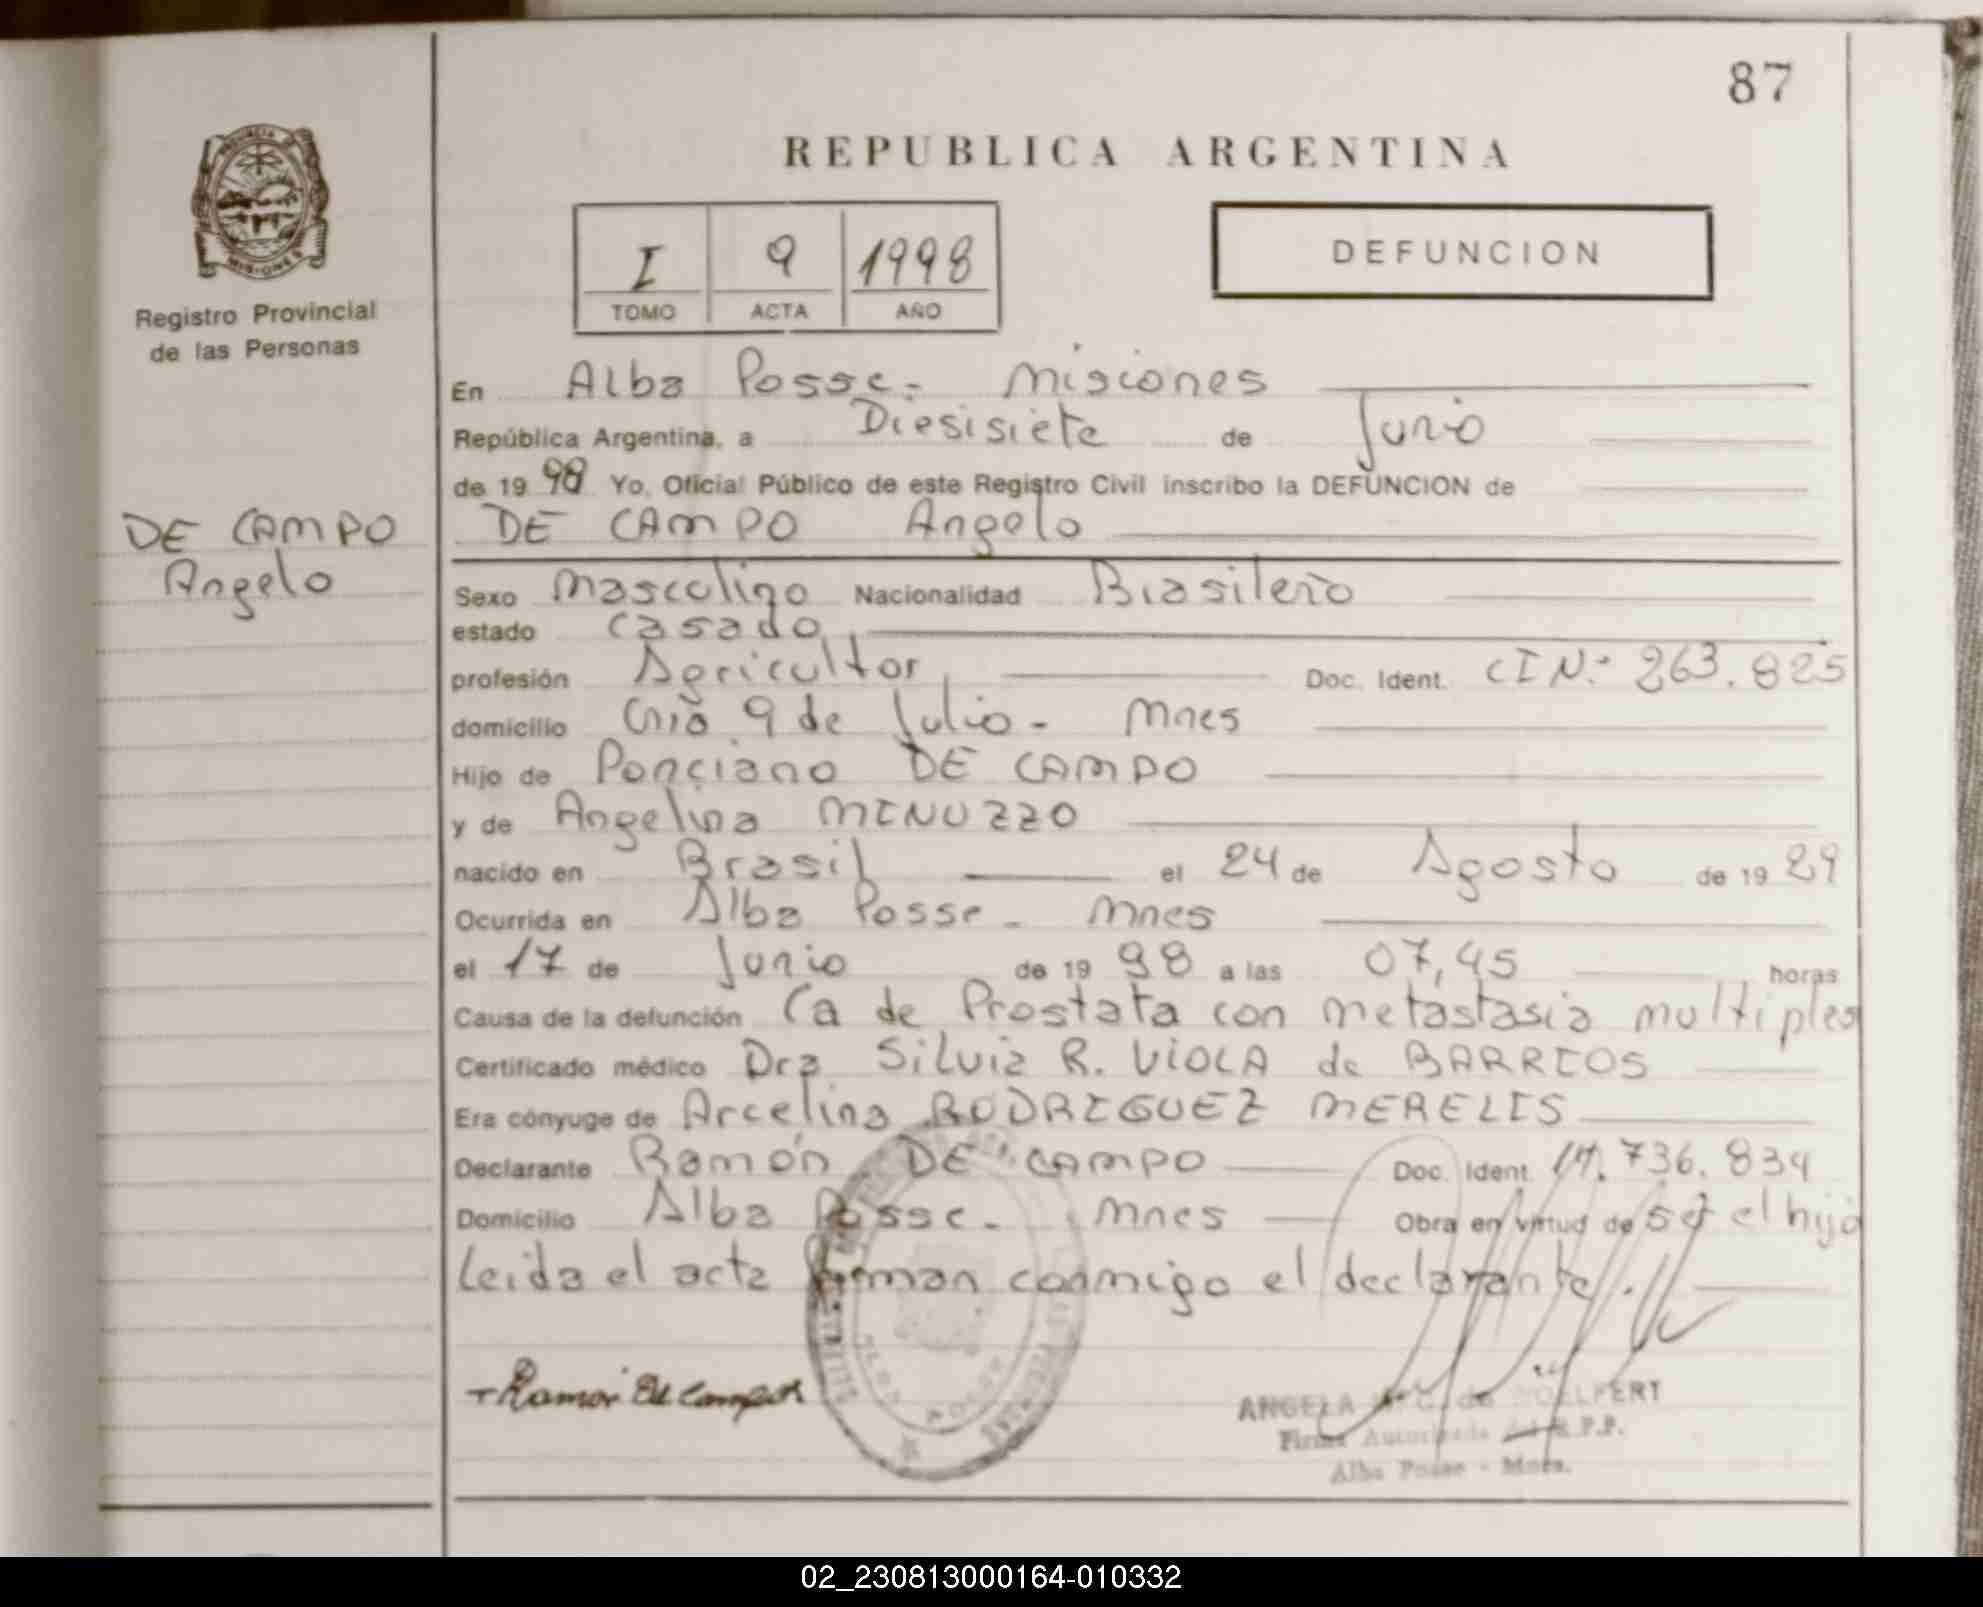 87
REPUBLICA ARGENTINA
PROVINCIA DE
MISIONES
Registro Provincial
de las Personas
I 9 1998
TOMO ACTA AÑO
DEFUNCION
En Alba Posse - Misiones
República Argentina, a Diesisiete de Junio
de 19 98 Yo, Oficial Público de este Registro Civil inscribo la DEFUNCION de
DE CAMPO Angelo
DE CAMPO
Angelo
Sexo Masculino Nacionalidad Brasilero
estado Casado
profesión Agricultor Doc. Ident. CIN: 263.825
domicilio Cnia 9 de Julio - Mnes
Hijo de Ponciano DE CAMPO
y de Angelina MINUZZO
nacido en Brasil el 24 de Agosto de 19 29
Ocurrida en Alba Posse - Mnes
el 17 de Junio de 19 98 a las 07,45 horas
Causa de la defunción Ca de Prostata con metastasia multiples
Certificado médico Dra. Silvia R. VIOLA de BARRIOS
Era cónyuge de Arcelina RODRIGUEZ MERELIS
Declarante Ramón DE CAMPO Doc. Ident. 17.736.834
Domicilio Alba Posse - Mnes Obra en virtud de ser el hijo
Leida el acta firman conmigo el declarante.
Ramon De Campos
ANGELA de
Firma Autorizada del R.P.P.
Alba Posse - Mnes.
02_230813000164-010332